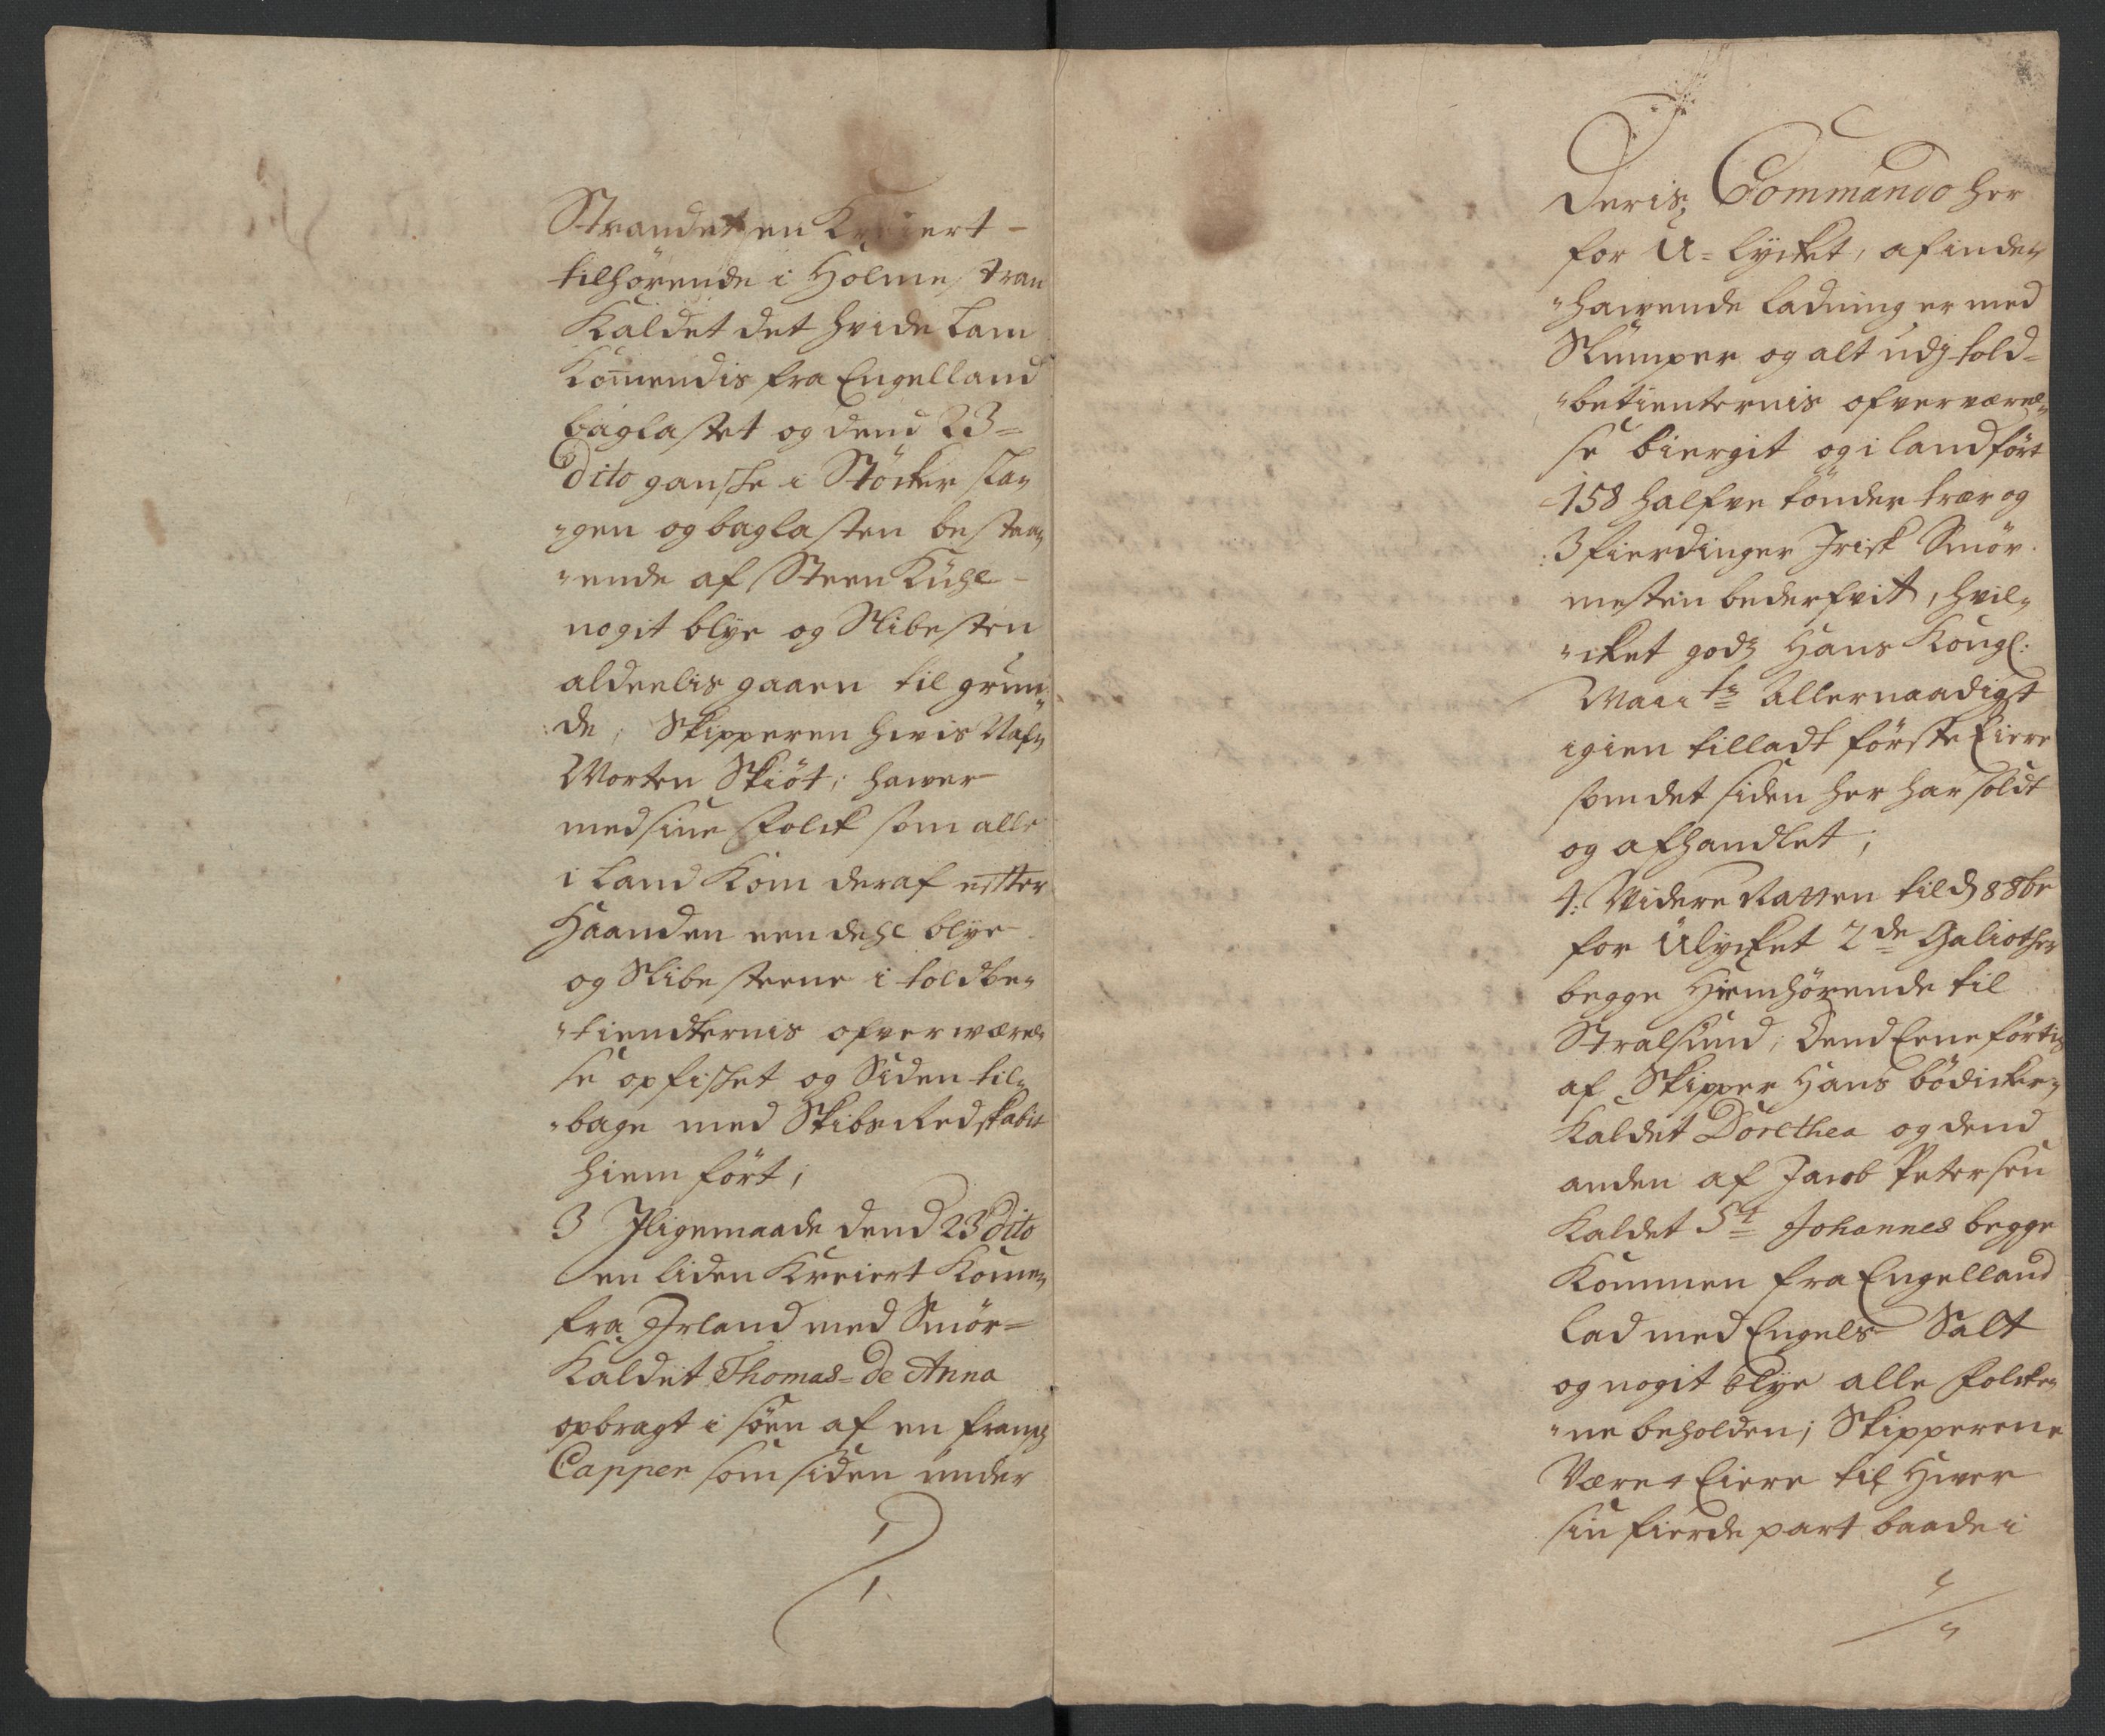 Strandet en Kreiert -
tilhörende i Holmestran
Kaldet det hvide Lam
Komendis fra Engelland
baglastet og dend 23 =
dito ganske i Stöcker sla„
„gen og baglasten bestaa„
„ende af Steen Kuhl -
nogit blye og Slibesten
aldeelis gaaen til grun„
„de, Skipperen hvis Nafn
Morten Skiöt; hawer
med sine Folck som alle
i Land Kom deraf efter
Haanden een dehl blye
og Slibesteene i toldbe„
„tiendternis ofverværel„
se opfisket og Siden til„
„bage med Skibs Redskabit
hiem fört;
3 Jligemaade dend 23 dito
en liden Kreiert Kome„
fra Jrland med Smör =
Kaldet Thomas = de Anna
opbragt i söen af en fransk
Capper som siden under
Deris Commando her
for U = lycket, af inde„
„hawende Ladning er med
Slumper og alt udj told =
„betienternis ofverværel„
se biergit og i land fört
158 halfve tönder trær og
3 fierdinger Jrisk Smör
mesten bederfvit, hvil„
„cket gods Hans Kongl:
Mai ts Allernaadigst
igien tilladt förste Eiere
som det siden her har soldt
og afhandlet;
4: Videre Natten til d 8 8br
for Ulycket 2de Galiother
begge Hiemhörende til
Stralsund; Dend Eene förtis
af Skipper Hans bödicker„
Kaldet Dorethea og dend
anden af Jacob Petersen
Kaldet St Johannes begge
Kommen fra Engelland
lad med Engels Salt
og nogit blye alle Folcke„
„ne beholden; Skipperene
Være Eiere til Hver
sin fierde part baade i